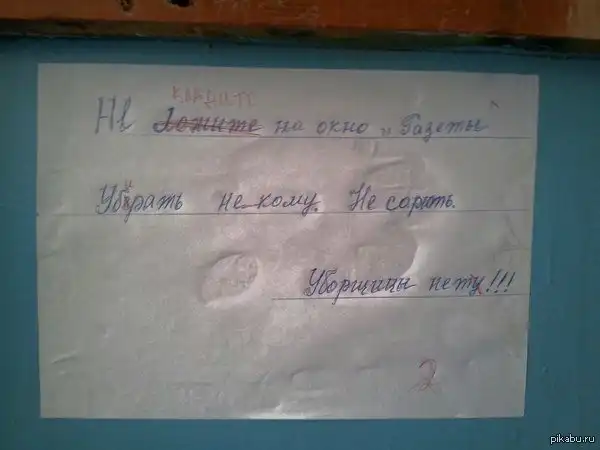 кладите
Не ложите на окно „Газеты"
Убирать не кому. Не сорить.
Уборщицы нету!!!
2
pikabu.ru